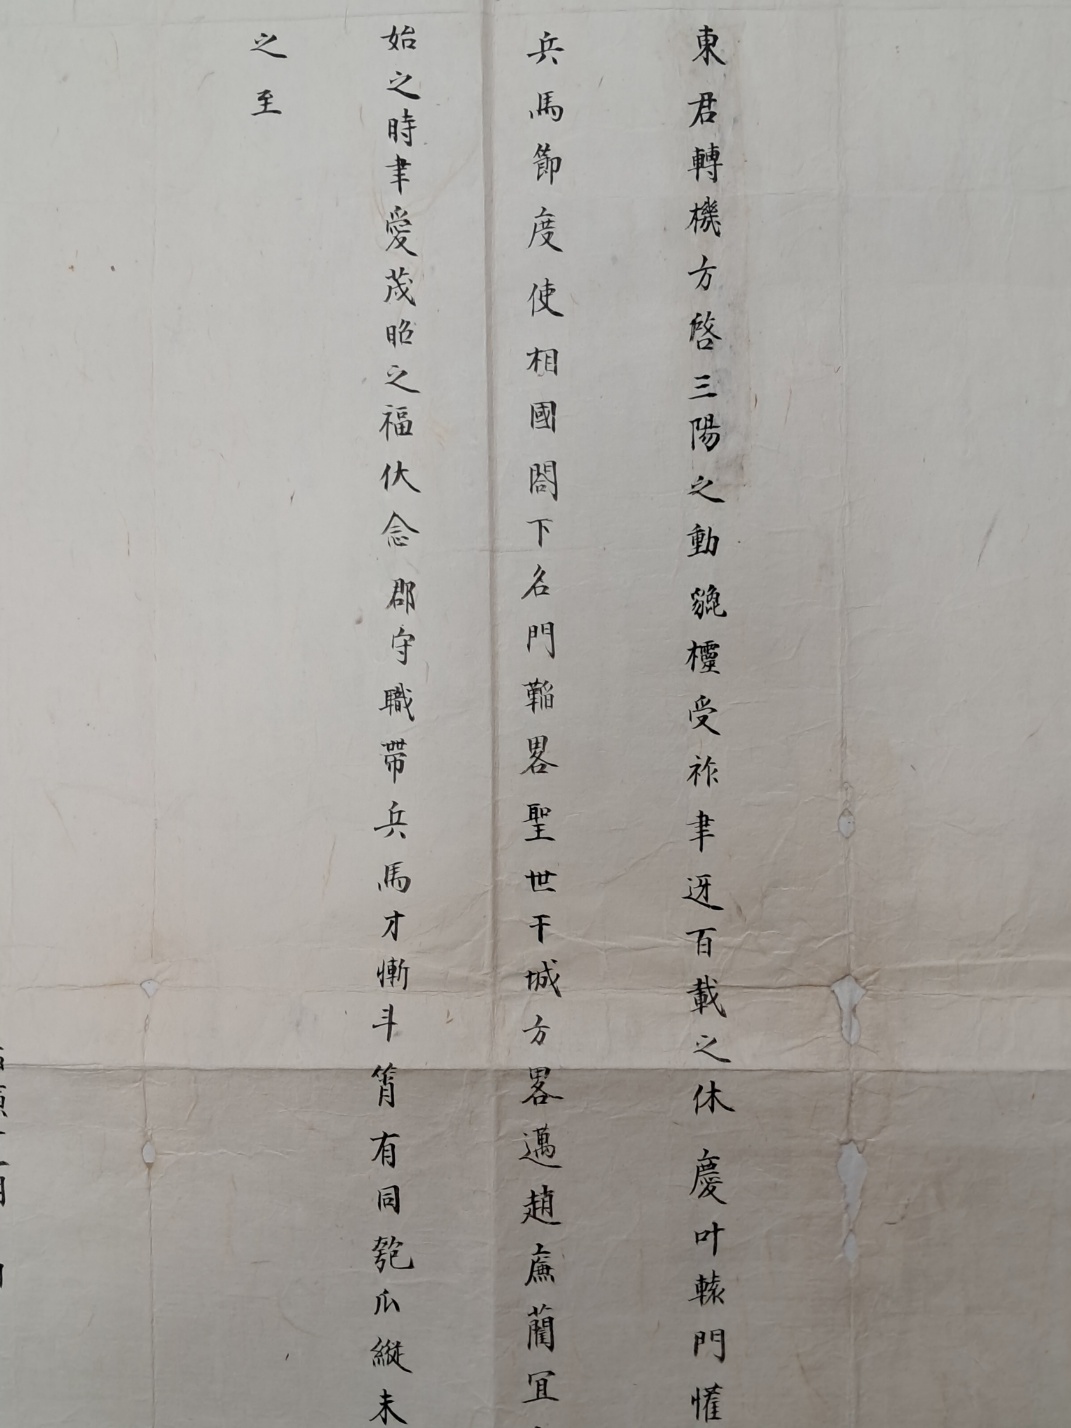 東君轉機方啓三陽之動貔櫮受祚聿迓百載之休慶叶轅門懽
兵馬節度使相國閤下名門韜畧聖世干城方畧邁趙廉藺冝
始之時聿愛茂昭之福伏念郡守職帶兵馬才慚斗筲有同匏瓜縱未
之至